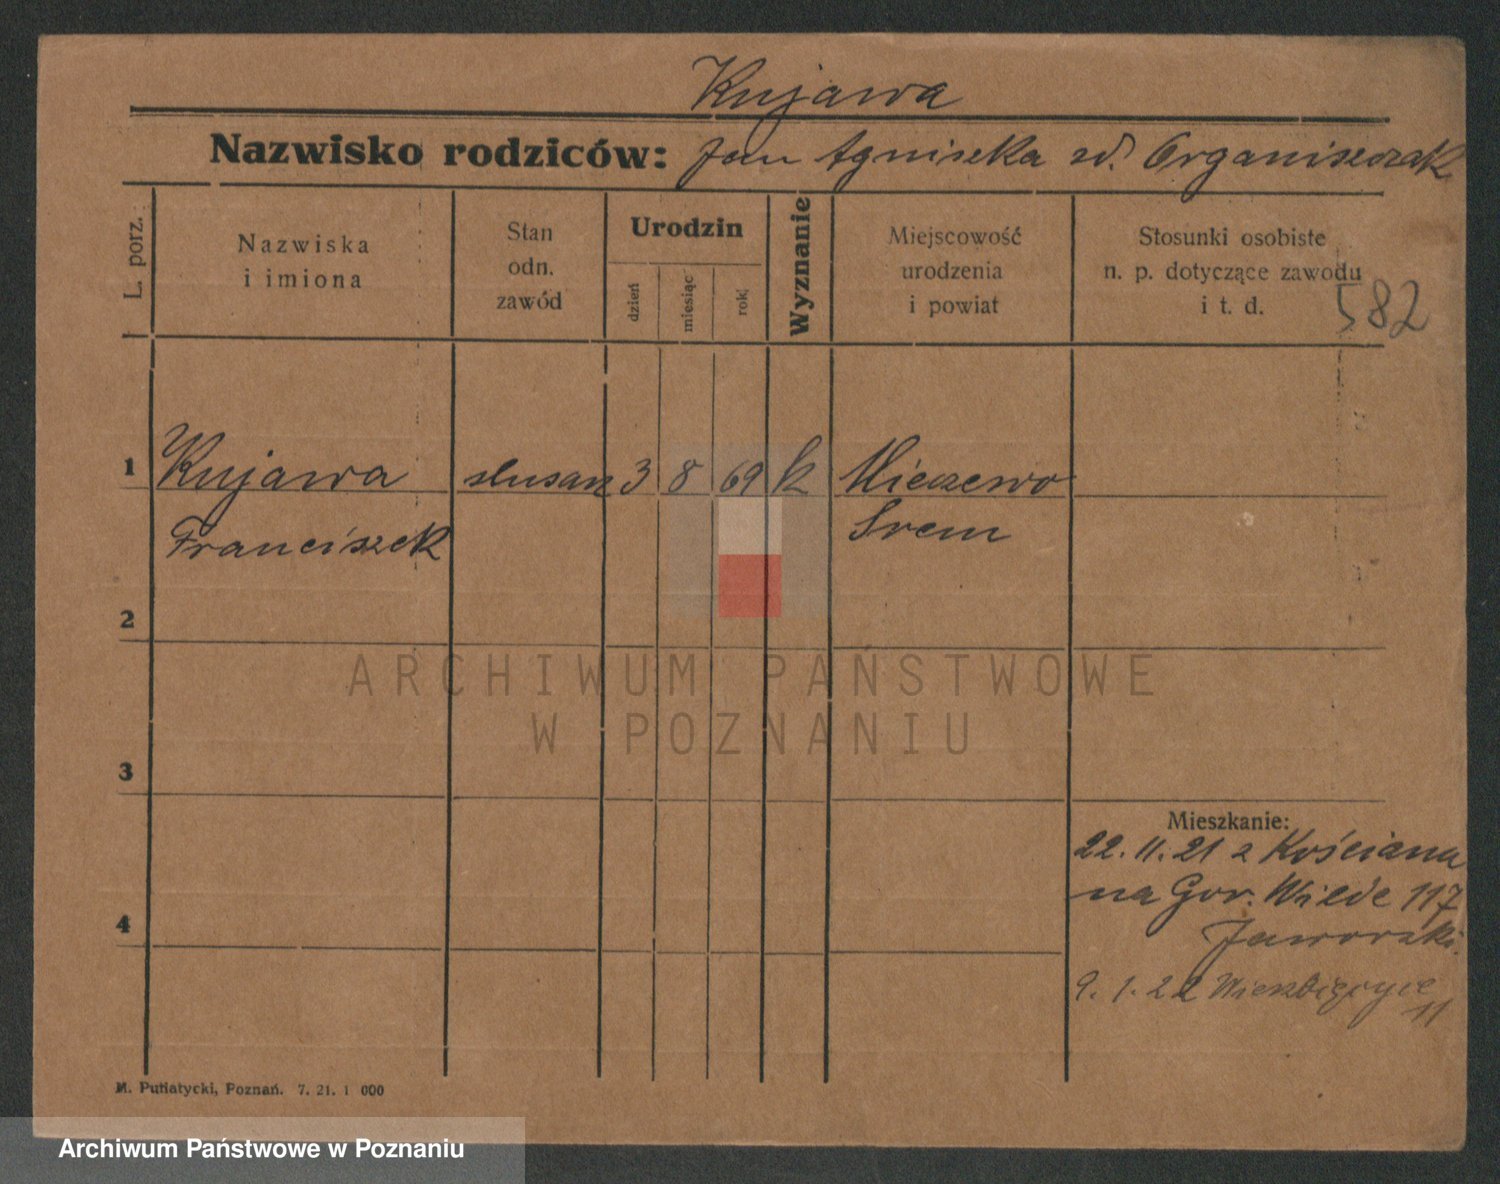 Kujawa
Nazwisko rodziców: Jan Agniszka zd. Organiszczak
L. porz.
Nazwiska
i imiona
Stan
odn.
zawód
Urodzin
dzień
miesiąc
rok
Wyznanie
Miejscowość
urodzenia
i powiat
Stosunki osobiste
n. p. dotyczące zawodu
i t. d.
582
1 Kujawa ślusarz 3 8 69 k
Franciszek Śrem
2
3
4
Mieszkanie:
22.11.21 z Kościana
na Gór. Wilde 117
Jaworski
9.1.22
11
M. Putiatycki, Poznań. 7. 21. 1 000
ARCHIWUM PAŃSTWOWE
W POZNANIU
Archiwum Państwowe w Poznaniu